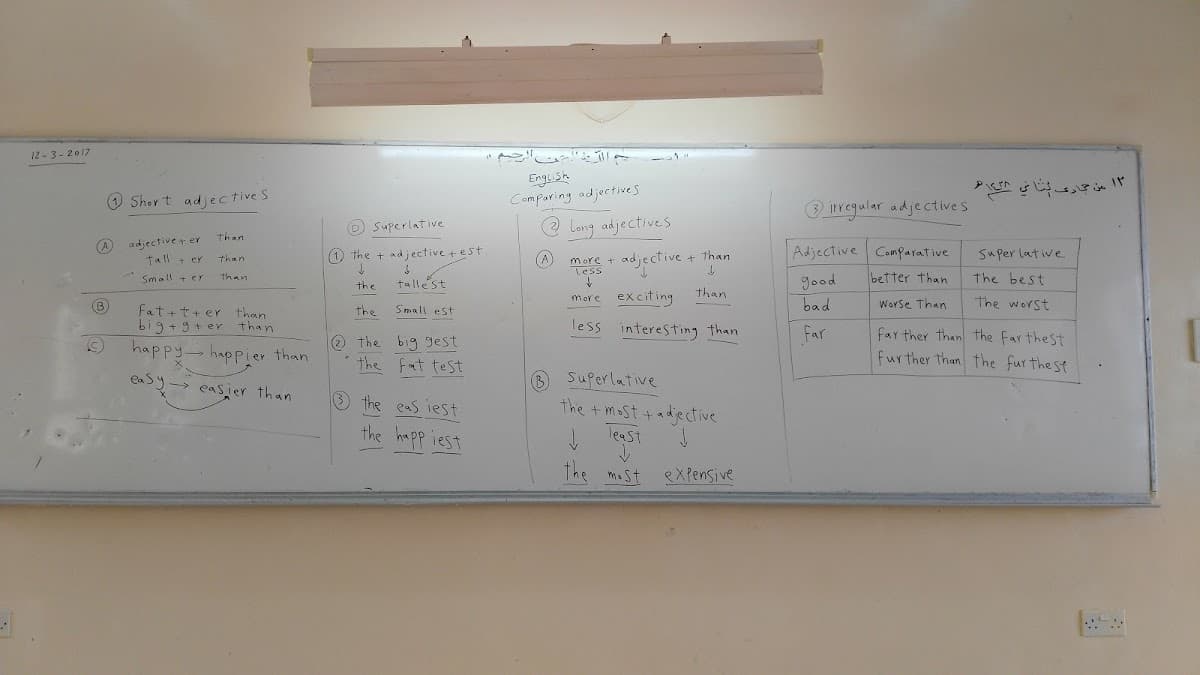 12-3-2017
بسم الله الرحمن الرحيم
English
Comparing adjectives
١٣ من جمادى الثاني ١٤٣٨ هـ
① Short adjectives
Ⓐ adjective + er than
tall + er than
Small + er than
Ⓑ Fat + t + er than
big + g + er than
Ⓒ happy → happier than
x
easy → easier than
x
Ⓓ Superlative
① the + adjective + est
the tallest
the Small est
② the big gest
the fat test
③ the eas iest
the happ iest
② Long adjectives
Ⓐ more + adjective + than
less
more exciting than
less interesting than
Ⓑ Superlative
the + most + adjective
least
the most expensive
③ Irregular adjectives
Adjective Comparative Superlative
good better than The best
bad worse Than The worst
far far ther than the far thest
fur ther than the fur thest